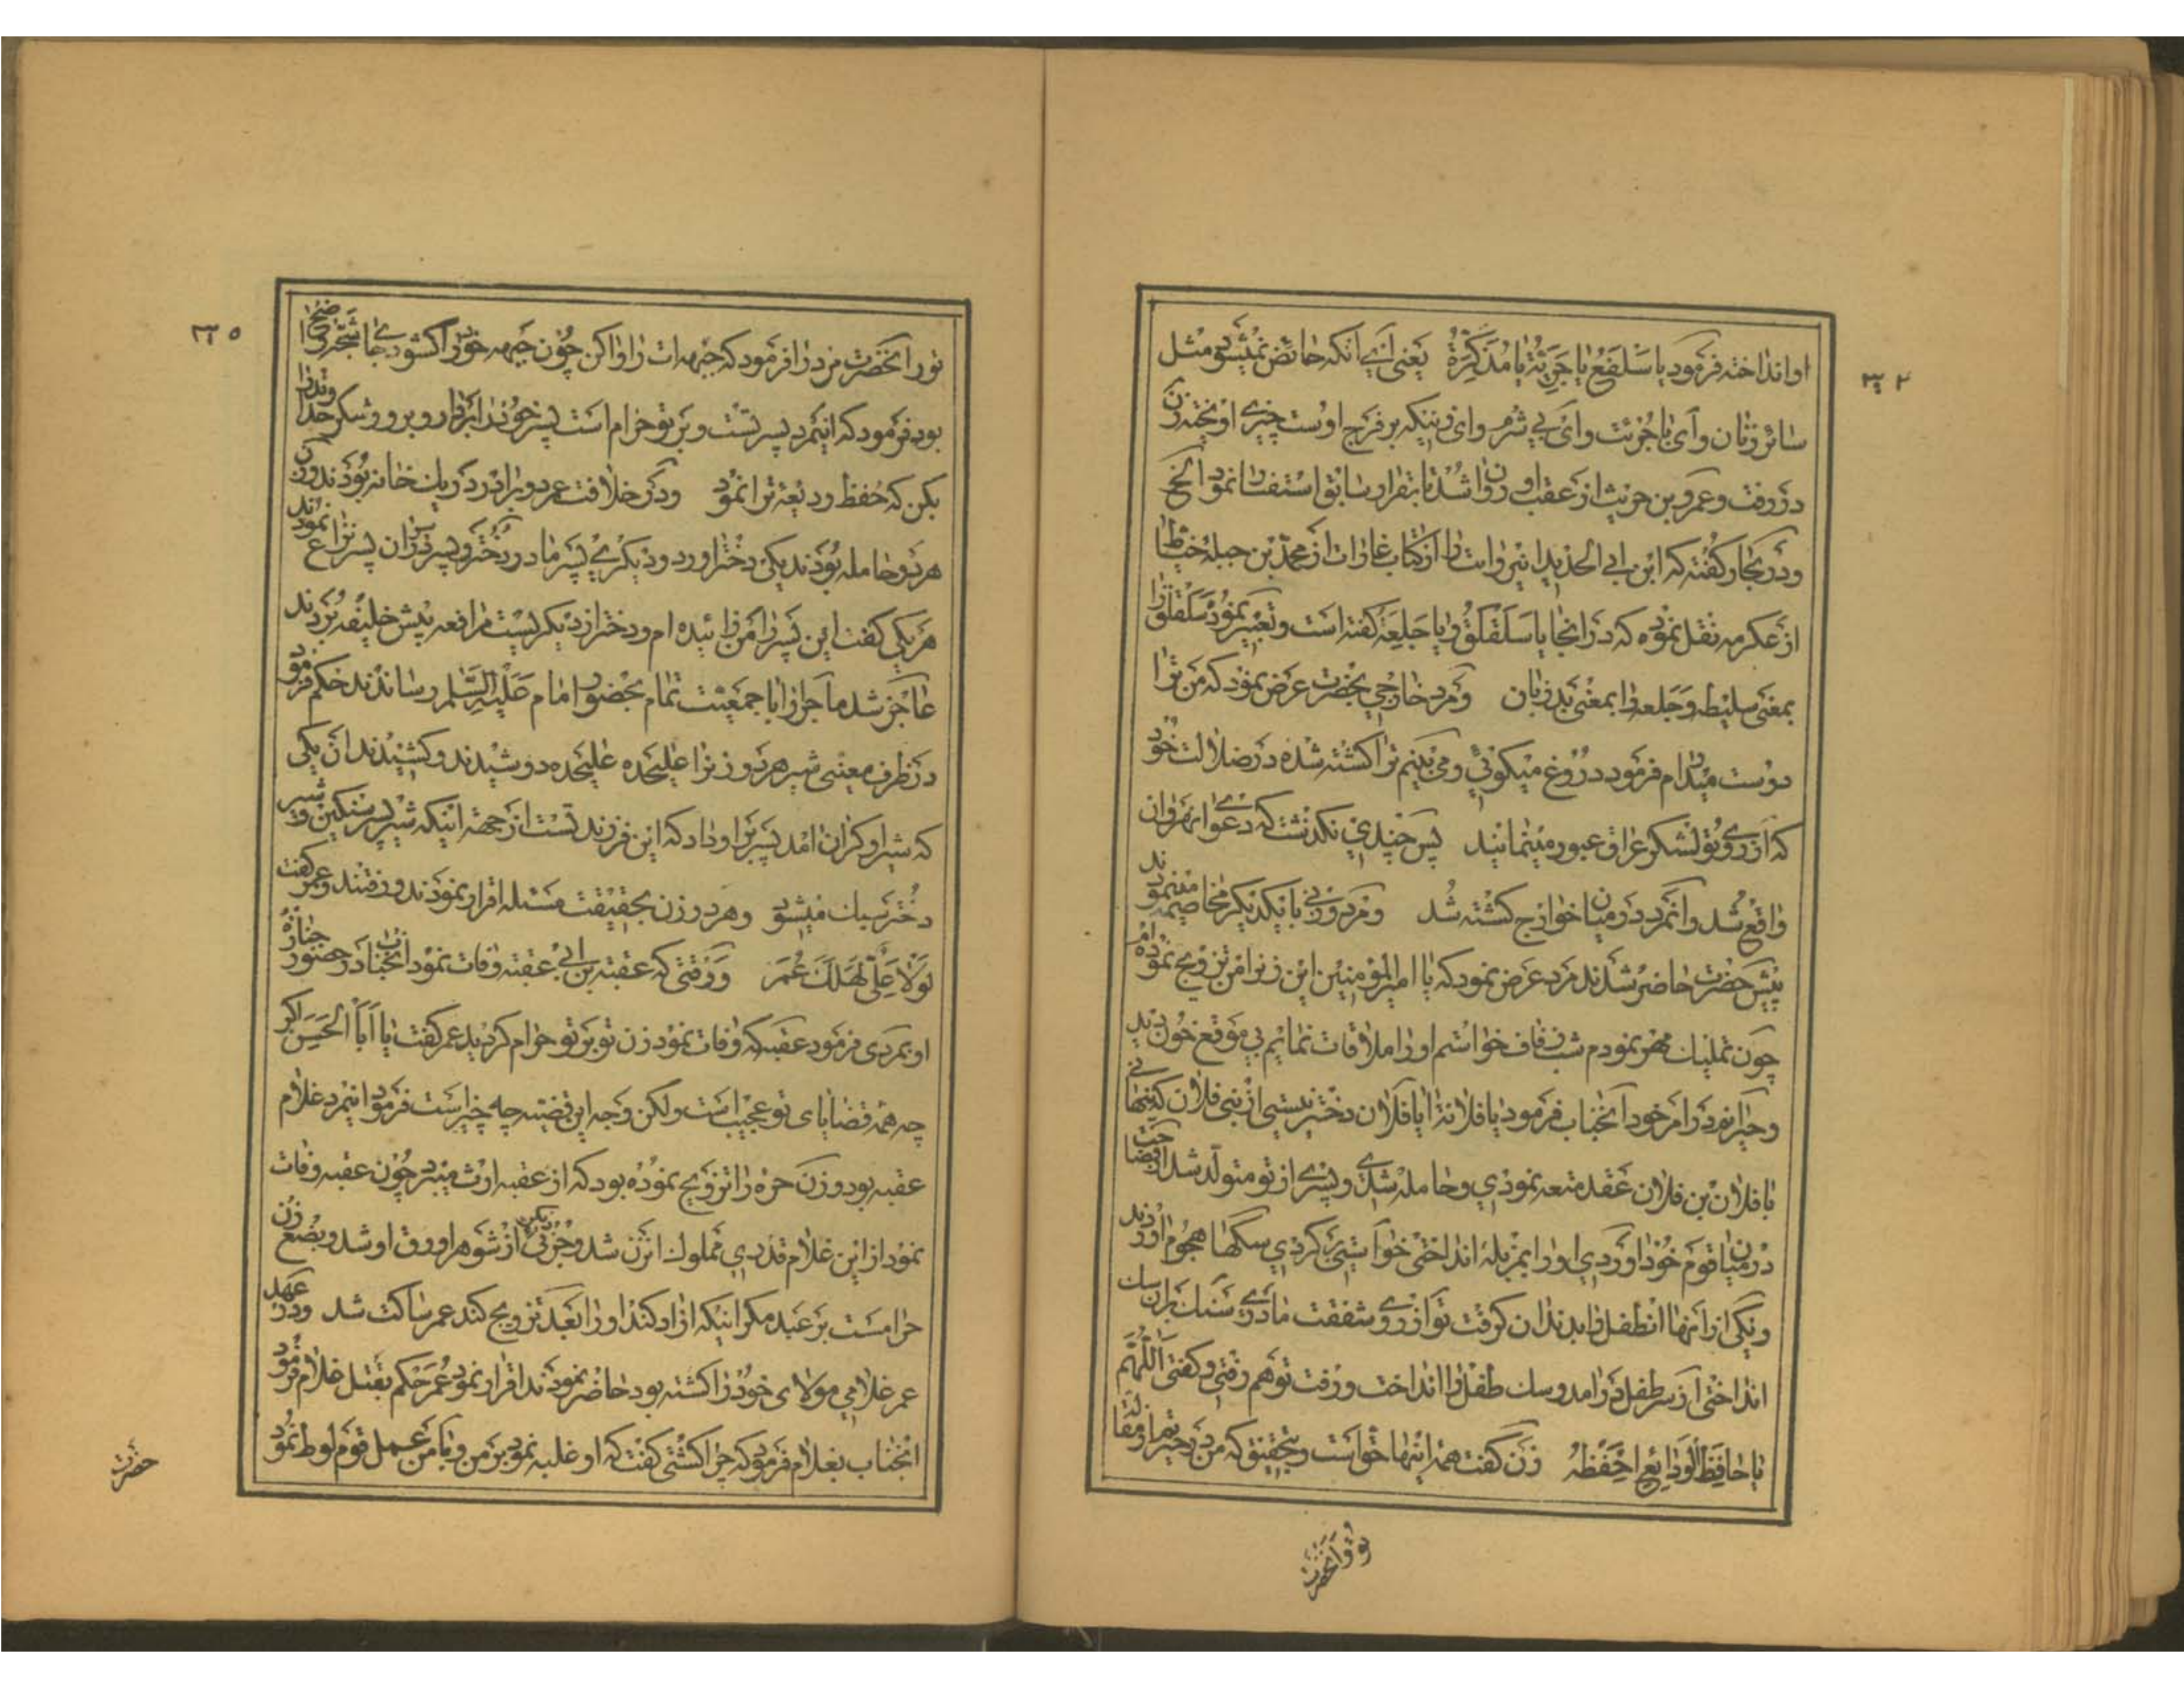 او انداخته فرمود یا سلفع یا جریّة یا مذکّرة یعنی ای آنکه حائض نمیشود مثل
سائر زنان و ای با جرئت و ای بی شرم و ای زنیکه بر فرج اوست چیزی اویخته زن
در رفت و عمرو بن حریث از عقب او روان شد تا بقرار سابق استفسار نمود الخ
و در بحار گفته که ابن ابی الحدید این روایت را از کتاب غارات از محمد بن جبله خیاط
از عکرمه نقل نموده که در انجا یا سلقلق و یا جلعة گفته است و تعبیر نموده سلقلق را
بمعنی سلیطه و جلعه را بمعنی بد زبان و مرد خارجی بحضرت عرض نمود که من ترا
دوست میدارم فرمود دروغ میکوئی و می بینم ترا کشته شده در ضلالت خود
که از روی تو لشکر عراق عبور مینمایند پس چندی نکذشت که دعوای نهروان
واقع شد و انمرد در میان خوارج کشته شد و مرد و زنی با یکدیگر مخاصمه نمودند
پیش حضرت حاضر شدند مرد عرض نمود که یا امیر المؤمنین این زن را من تزویج نموده ام
چون تملیک مهر نمودم شب زفاف خواستم او را ملاقات نمایم بی موقع خون دید
و حیرانم در امر خود آنجناب فرمود یا فلانة ایا فلان دختر نیستی از بنی فلان که پنهانی
با فلان بن فلان عقد متعه نمودی و حامله شدی و پسری از تو متولد شد
در میان قوم خود اوردی او را بمزبله انداختی خواستی کردی سکها هجوم اوردند
و یکی از آنها انطفل را بدندان کرفت تو از روی شفقت مادری سنک بران سک
انداختی از سر طفل در امد و سک طفل را انداخت و رفت تو هم رفتی و کفتی اللّهمّ
یا حافظ الودایع احفظه زن گفت همه اینها حق است و بتحقیق که من در حیرتم از مقاله
تو و انحضرت
تو را نحضرت مرد را فرمود که جبهه ات را وا کن چون جبهه خود را کشود جای
بود فرمود که اینمرد پسر تست و بر تو حرام است پسر خود را بردار و برو و شکر خدا
بکن که حفظ ودیعهٔ ترا نمود و در خلافت عمر دو برادر در یک خانه بودند و زن
هر دو حامله بودند یکی دختر اورد و دیگری پسر مادر دختر و پسر در ان پسر نزاع نمودند
هر یکی کفت این پسر را من زائیده ام و دختر از دیگریست مرافعه پیش خلیفه بردند
عاجز شد ماجرا را با جمعیت تمام بحضور امام علیه السّلم رساندند حکم فرمود
در ظرف معینی شیر هر دو زنرا علیحده علیحده دوشیدند و کشیدند ان یکی
که شیر او کران امد پسر را باو داد که این فرزند تست از جهة اینکه شیر پسر سنکین و شیر
دختر سبک میشود و هر دو زن بحقیقت مسئله اقرار نمودند و رفتند و عمر کفت
لولا علیّ لهلک عمر و وقتی که عقبة بن ابی عقبه وفات نمود انجناب در حضور جنازهٔ
او بمردی فرمود عقبه که وفات نمود زن تو بر تو حرام کردید عمر کفت یا أبا الحسن اکر
چه همه قضایای تو عجیب است ولکن وجه این قضیه چه چیز است فرمود اینمرد غلام
عقبه بود و زن حره را تزویج نموده بود که از عقبه ارث میبرد چون عقبه وفات
نمود از این غلام قدری مملوک انزن شد و جزئی از شوهر او رق او شد و بضع زن
حرامست بر عبد مکر اینکه ازاد کند او را بعد تزویج کند عمر ساکت شد و در عهد
عمر غلامی مولای خود را کشته بود حاضر نمودند اقرار نمود عمر حکم بقتل غلام فرمود
انجناب بغلام فرمود که چرا کشتی کفت که او غلبه نمود بر من و با من عمل قوم لوط نمود
حضرت